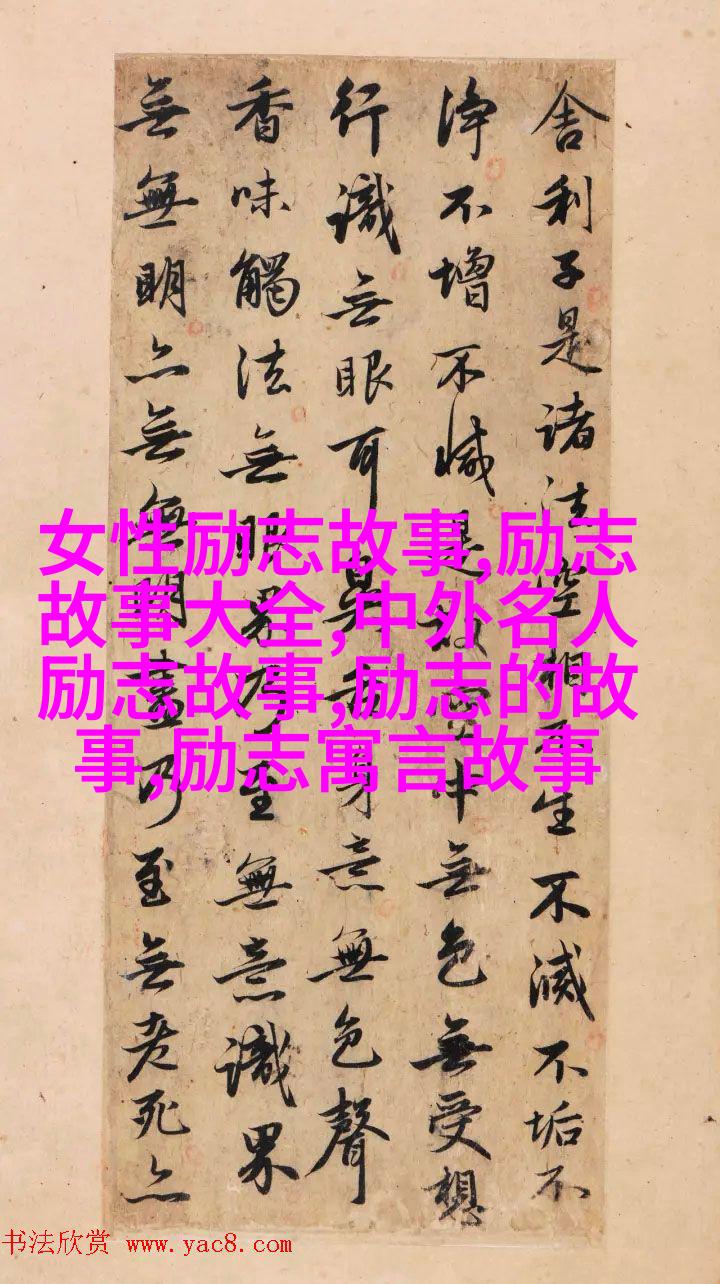 舍利子是諸法空相不生不滅不垢不
淨不增不減是故空中無色無受想
行識無眼耳鼻舌身意無色聲
香味觸法無眼界乃至無意識界
無無明亦無無明盡乃至無老死亦
女性励志故事,励志
故事大全,中外名人
励志故事,励志的故
事,励志寓言故事
书法欣赏 www.yac8.com